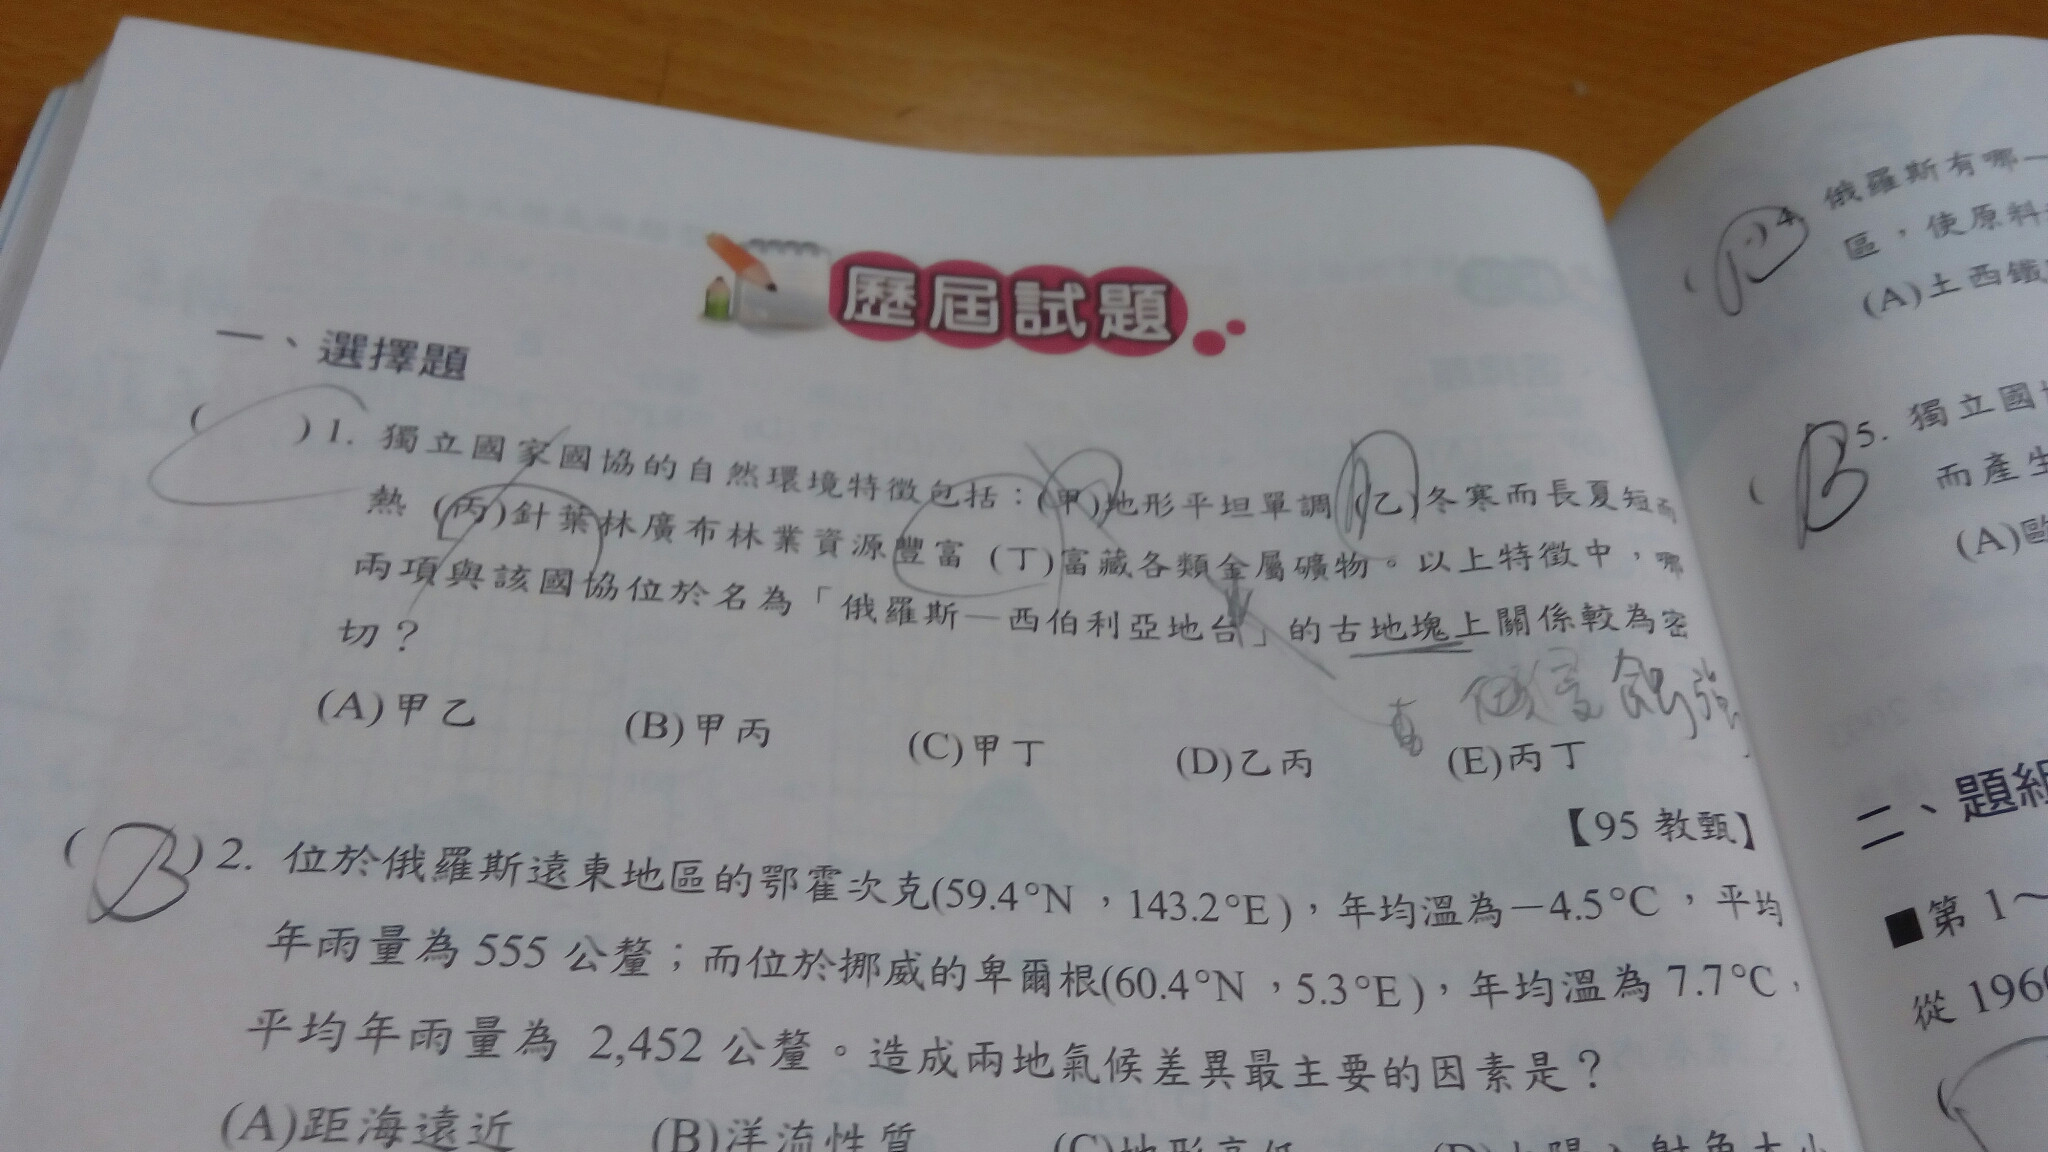 歷屆試題
一、選擇題
( )1. 獨立國家國協的自然環境特徵包括：(甲)地形平坦單調 (乙)冬寒而長夏短而
熱 (丙)針葉林廣布林業資源豐富 (丁)富藏各類金屬礦物。以上特徵中，哪
兩項與該國協位於名為「俄羅斯—西伯利亞地台」的古地塊上關係較為密
切？
(A)甲乙 (B)甲丙 (C)甲丁 (D)乙丙 (E)丙丁
【95 教甄】
(B)2. 位於俄羅斯遠東地區的鄂霍次克(59.4°N，143.2°E)，年均溫為－4.5°C，平均
年雨量為 555 公釐；而位於挪威的卑爾根(60.4°N，5.3°E)，年均溫為 7.7°C，
平均年雨量為 2,452 公釐。造成兩地氣候差異最主要的因素是？
(A)距海遠近 (B)洋流性質 (C)地形高低
4. 俄羅斯有哪一
區，使原料
(A)土西鐵
(B)5. 獨立國
而產生
(A)歐
二、題組
■第 1～
從 196